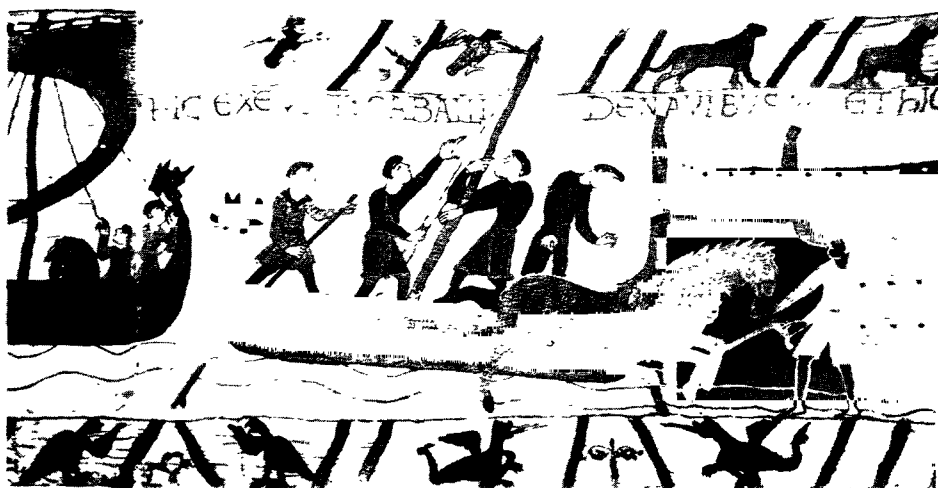 HIC EXE CABALLI DENAVIBVS ET hIC